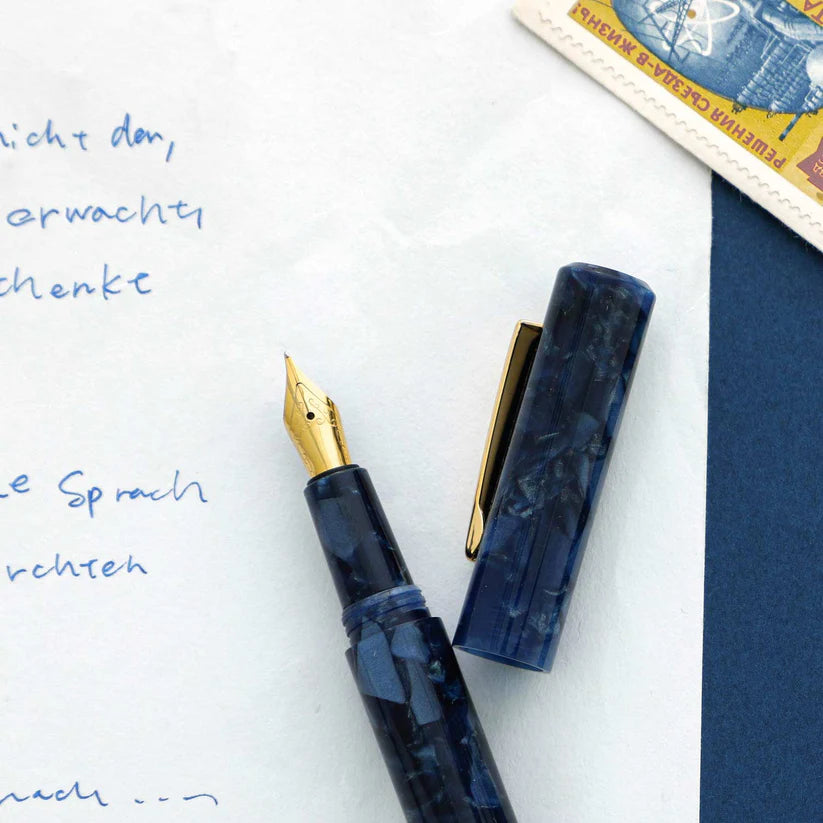 nicht den,
erwacht,
schenke
Sprach
rchten
nach ...
РЕШЕНИЯ СЪЕЗДА-В ЖИЗНЬ!